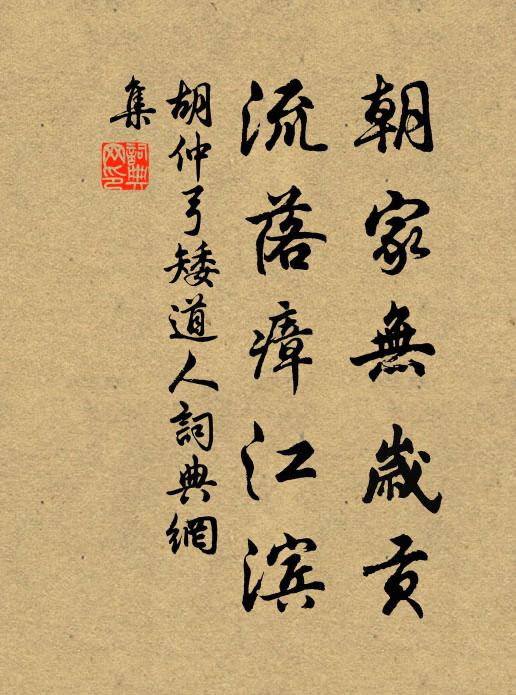 朝家無歲貢
流落瘴江滨
胡仲弓矮道人詞典網
集
詞典網印